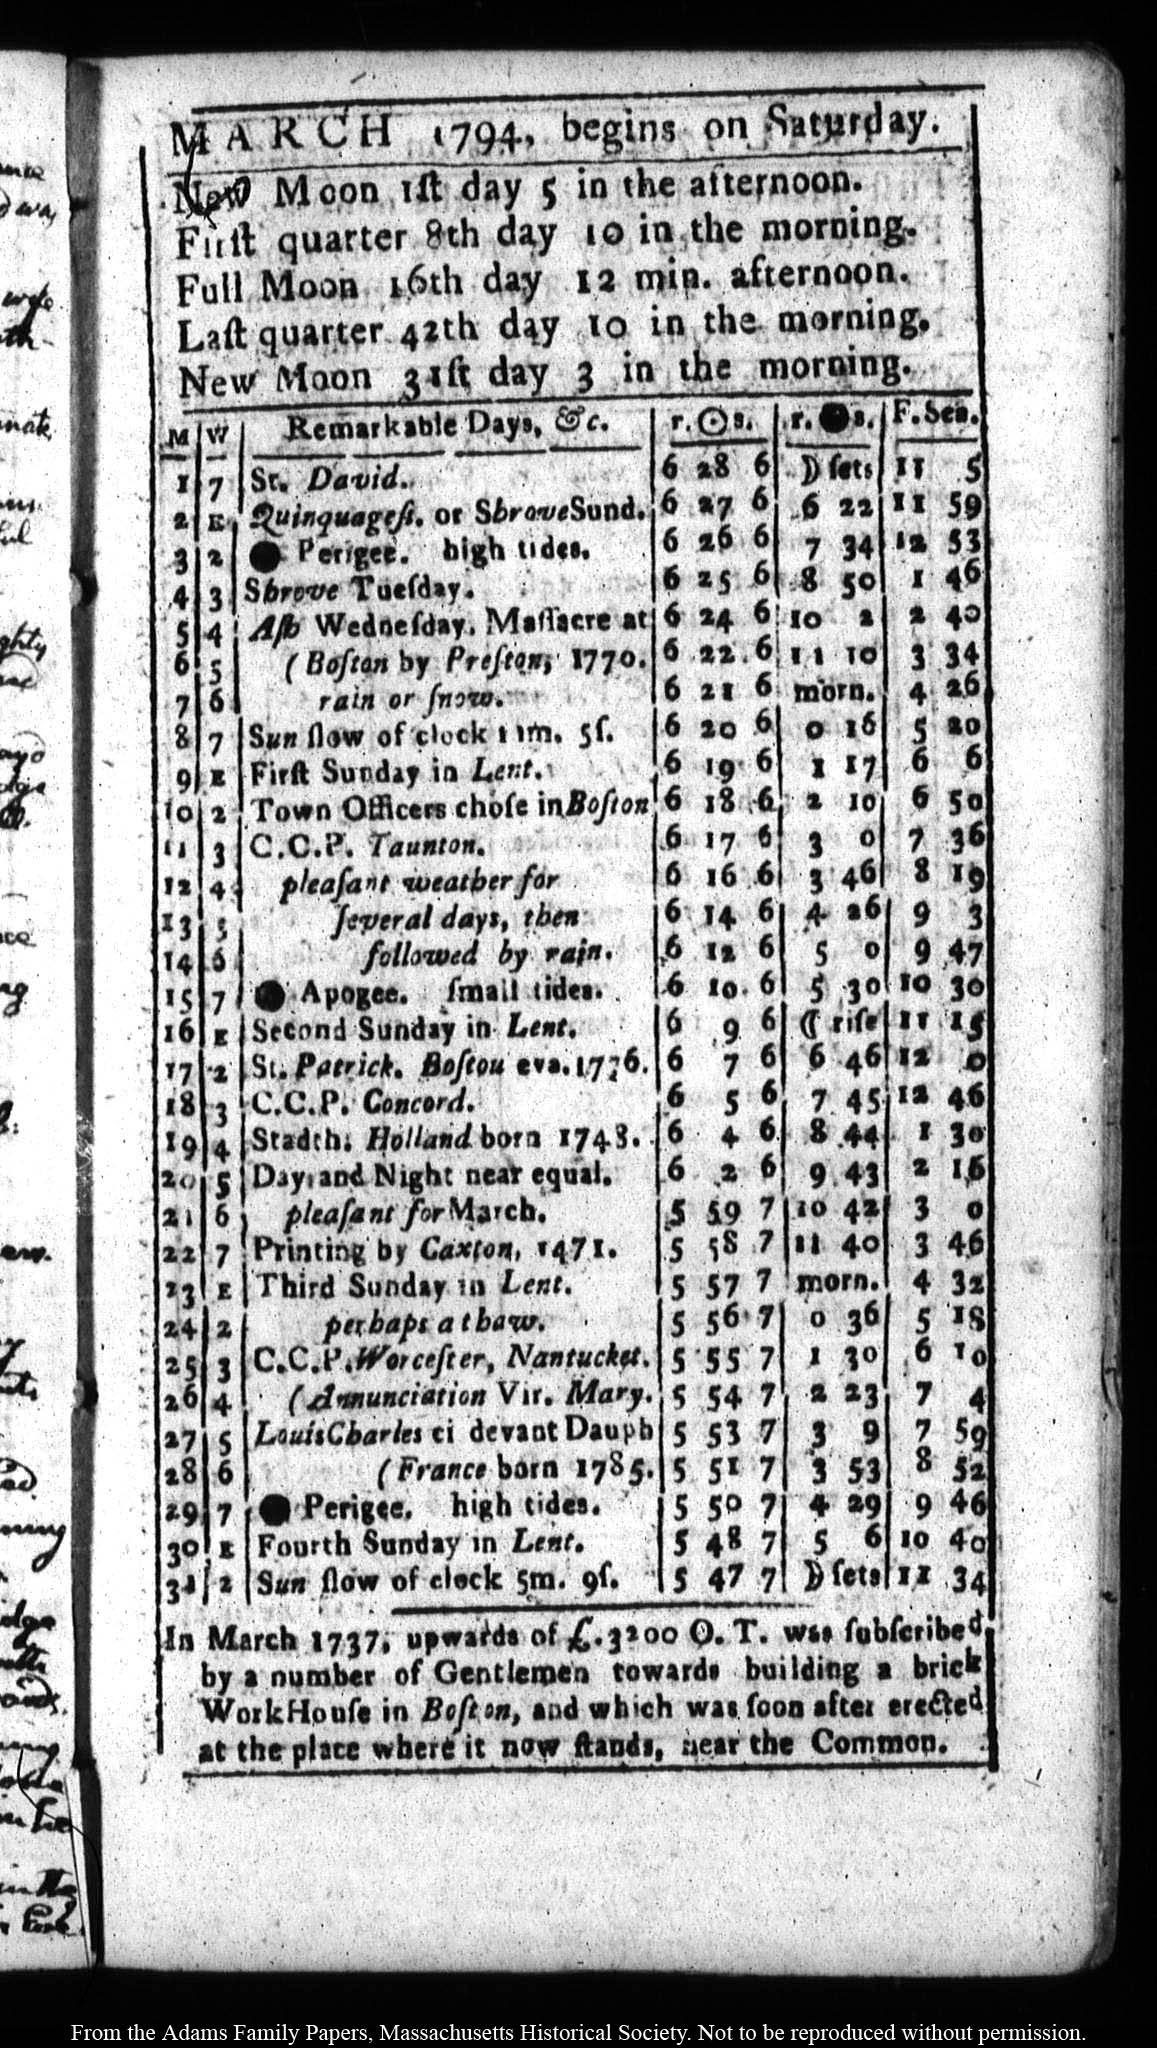 MARCH 1794, begins on Saturday.
New Moon 1ſt day 5 in the afternoon.
Firſt quarter 8th day 10 in the morning.
Full Moon 16th day 12 min. afternoon.
Laſt quarter 42th day 10 in the morning.
New Moon 31ſt day 3 in the morning.
M W Remarkable Days, &c. r. ☉ s. r. ● s. F. Sea.
1 7 St. David. 6 28 6 ☽ ſets 11 5
2 E Quinquageſi. or Shrove Sund. 6 27 6 6 22 11 59
3 2 ● Perigee. high tides. 6 26 6 7 34 12 53
4 3 Shrove Tueſday. 6 25 6 8 50 1 46
5 4 Aſh Wedneſday. Maſſacre at 6 24 6 10 2 2 40
6 5 (Boſton by Preſton, 1770. 6 22 6 11 10 3 34
7 6 rain or ſnow. 6 21 6 morn. 4 26
8 7 Sun ſlow of clock 11m. 5ſ. 6 20 6 0 16 5 20
9 E Firſt Sunday in Lent. 6 19 6 1 17 6 6
10 2 Town Officers choſe in Boſton 6 18 6 2 10 6 50
11 3 C.C.P. Taunton. 6 17 6 3 0 7 36
12 4 pleaſant weather for 6 16 6 3 46 8 19
13 5 ſeveral days, then 6 14 6 4 26 9 3
14 6 followed by rain. 6 12 6 5 0 9 47
15 7 ● Apogee. ſmall tides. 6 10 6 5 30 10 30
16 E Second Sunday in Lent. 6 9 6 ☾ riſe 11 15
17 2 St. Patrick. Boſtou eva. 1776. 6 7 6 6 46 12 0
18 3 C.C.P. Concord. 6 5 6 7 45 12 46
19 4 Stadth. Holland born 1748. 6 4 6 8 44 1 30
20 5 Day and Night near equal. 6 2 6 9 43 2 16
21 6 pleaſant for March. 5 59 7 10 42 3 0
22 7 Printing by Caxton, 1471. 5 58 7 11 40 3 46
23 E Third Sunday in Lent. 5 57 7 morn. 4 32
24 2 perhaps a thaw. 5 56 7 0 36 5 18
25 3 C.C.P. Worceſter, Nantucket. 5 55 7 1 30 6 10
26 4 (Annunciation Vir. Mary. 5 54 7 2 23 7 4
27 5 Louis Charles ci devant Dauph 5 53 7 3 9 7 59
28 6 (France born 1785. 5 51 7 3 53 8 52
29 7 ● Perigee. high tides. 5 50 7 4 29 9 46
30 E Fourth Sunday in Lent. 5 48 7 5 6 10 40
31 2 Sun ſlow of clock 5m. 9ſ. 5 47 7 ☽ ſets 11 34
In March 1737, upwards of £.3200 O. T. was ſubſcribed
by a number of Gentlemen towards building a brick
WorkHouſe in Boſton, and which was ſoon after erected
at the place where it now ſtands, near the Common.
From the Adams Family Papers, Massachusetts Historical Society. Not to be reproduced without permission.